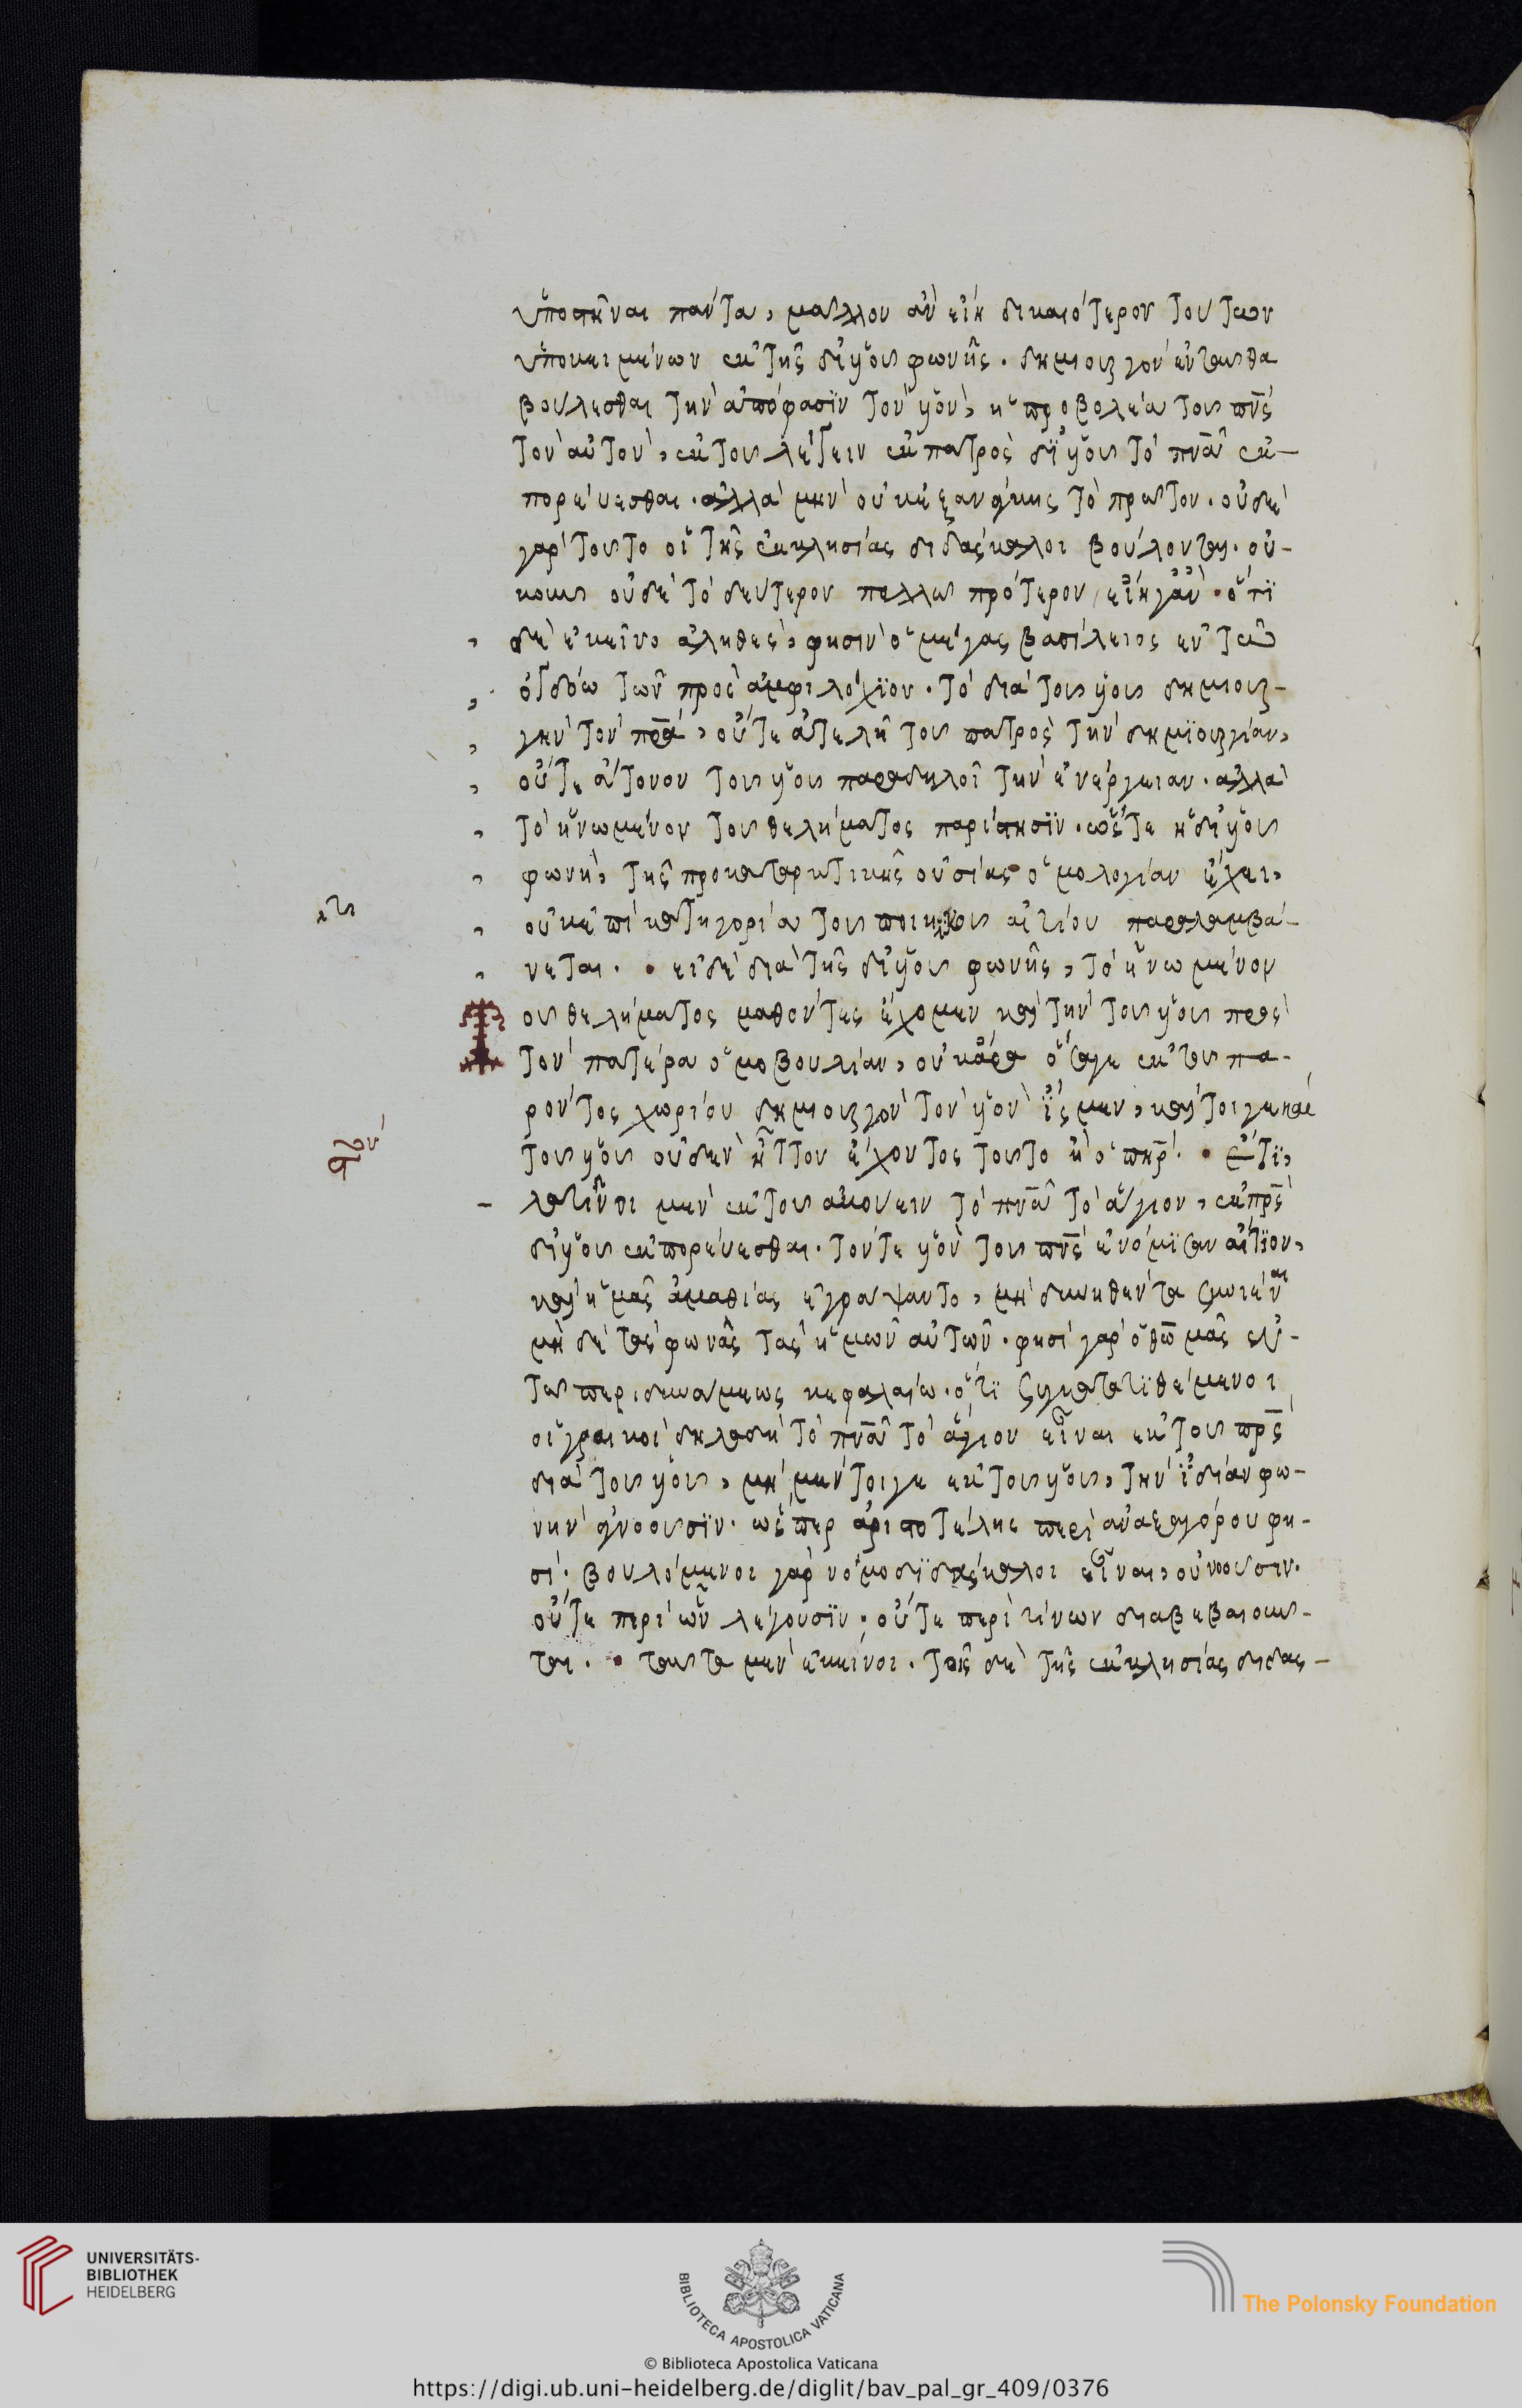 ὑποστῆναι πάντα, μᾶλλον ἂν εἴη δικαιότερον τουτων
ὑποκειμένων ἐκ τῆς δι' υἱοῦ φωνῆς. δημιουργὸν ἐνταῦθα
βούλεσθαι τὴν ἀπόφασϊν τὸν υἱὸν, ἢ προβολέα τοῦ πν̅ς
τὸν αὐτὸν, ἐκ τοῦ λέγειν ἐκ πατρὸς δϊ υἱοῦ τὸ πν̅α ἐκ-
πορεύεσθαι. ἀλλὰ μὴν οὐκ ἐξανάγκης τὸ πρῶτον. οὐδὲ
γὰρ τοῦτο οἱ τῆς ἐκκλησίας διδάσκαλοι βούλονται. οὐ-
κοῦν οὐδὲ τὸ δεύτερον πολλῶ πρότερον, εἴη γἂν. ὅτϊ
δὲ ἐκεῖνο ἀληθὲς, φησὶν ὁ μέγας βασίλειος ἐν τῶ
ὀγδόω τῶν πρὸς ἀμφιλόχϊον. τὸ διὰ τοῦ υἱοῦ δημιουρ-
γεῖν τὸν πρ̅α, οὔτε ἀτελῆ τοῦ πατρὸς τὴν δημϊουργίαν,
οὔτε ἄτονον τοῦ υἱοῦ παραδηλοῖ τὴν ἐνέργειαν. ἀλλὰ
τὸ ἡνωμένον τοῦ θελήματος παρίστησϊν. ὥστε ἡ δι' υἱοῦ
φωνὴ, τῆς προκαταρκτικῆς οὐσίας ὁμολογίαν ἔχει,
οὐκ ἐπὶ κατηγορία τοῦ ποιητικοῦ αἰτίου παραλαμβά-
νεται. εἰ δὲ διὰ τῆς δι' υἱοῦ φωνῆς, τὸ ἡνωμένον
οῦ θελήματος μαθόντες ἔχομεν καὶ τὴν τοῦ υἱοῦ πρὸς
τὸν πατέρα ὁμοβουλίαν, οὐκ ἄρα ὅσαγε ἐκ τοῦ πα-
ρόντος χωρίου δημιουργὸν τὸν υἱὸν ἴσμεν, καίτοιγε καὶ
τοῦ υἱοῦ οὐδὲν ἧττον ἔχοντος τοῦτο ἢ ὁ πηρ̅. ἔτϊ,
λατῖνοι μὲν ἐκ τοῦ ἀκούειν τὸ πν̅α τὸ ἅγιον, ἐκ πρ̅ς
δι' υἱοῦ ἐκπορεύεσθαι. τόν τε υἱὸν τοῦ πν̅ς ἐνόμϊσαν αἴτϊον,
καὶ ἡμᾶς ἀμαθίας ἐγράψαντο, μὴ δυνηθέντα συνιέναι
μὴ δὲ τὰς φωνὰς τὰς ἡμῶν αὐτῶν. φησὶ γὰρ ὁ θω̅μᾶς ἐν
τῶ περὶ δυνάμεως κεφαλαίω. ὅτϊ συγκατατϊθέμενοι
οἱ γραικοὶ δηλαδὴ τὸ πν̅α τὸ ἅγιον εἶναι ἐκ τοῦ πρ̅ς
διὰ τοῦ υἱοῦ, μὴ μέντοιγε ἐκ τοῦ υἱοῦ, τὴν ἰδίαν φω-
νὴν ἀγνοοῦσϊν. ὥσπερ ἀριστοτέλης περὶ ἀναξαγόρου φη-
σί. βουλόμενοι γὰρ νομοδϊδάσκαλοι εἶναι, οὐ νοοῦσιν.
οὔτε περὶ ὧν λέγουσϊν, οὔτε περὶ τίνων διαβεβαιοῦν-
ται. ταῦτα μὲν ἐκεῖνοι. τοῖς δὲ τῆς ἐκκλησίας διδας-
UNIVERSITÄTS-
BIBLIOTHEK
HEIDELBERG
BIBLIOTECA APOSTOLICA VATICANA
The Polonsky Foundation
© Biblioteca Apostolica Vaticana
https://digi.ub.uni-heidelberg.de/diglit/bav_pal_gr_409/0376